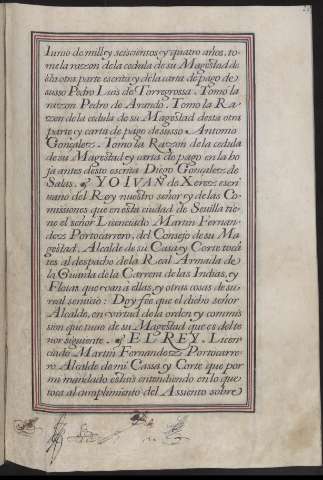 Iunio de mill y seiscientos y quatro años. to-
me la razon de la cedula de su Magestad de
esta otra parte escrita y de la carta de pago de
susso Pedro Luis de Torregrossa. Tomó la
razon Pedro de Avando. Tomo la Ra-
zon de la cedula de su Magestad desta otra
parte y carta de pago de susso. Antonio
Gonçalez. Tomo la Razon de la cedula
de su Magestad y cartas de pago en la ho
ja antes desto escrita Diego Gonçalez de
Salas. YO IVAN de Xerez escri
uano del Rey nuestro señor y de las Co-
missiones que en esta ciudad de Seuilla tie-
ne el señor Licenciado Martin Fernan-
dez Portocarrero, del Consejo de su Ma-
gestad, Alcalde de su Casa y Corte tocã
tes al despacho de la Real Armada de
la Guarda de la Carrera de las Indias, y
Flotas que van à ellas, y otras cosas de su
real seruicio: Doy fee que el dicho señor
Alcalde, en virtud de la orden y commis
sion que tuuo de su Magestad que es del te
nor siguiente. EL REY. Licen
ciado Martin Fernandez Portocarre
ro Alcalde de mi Cassa y Corte que por
mi mandado estais entendiendo en lo que
toca al cumplimiento del Assiento sobre